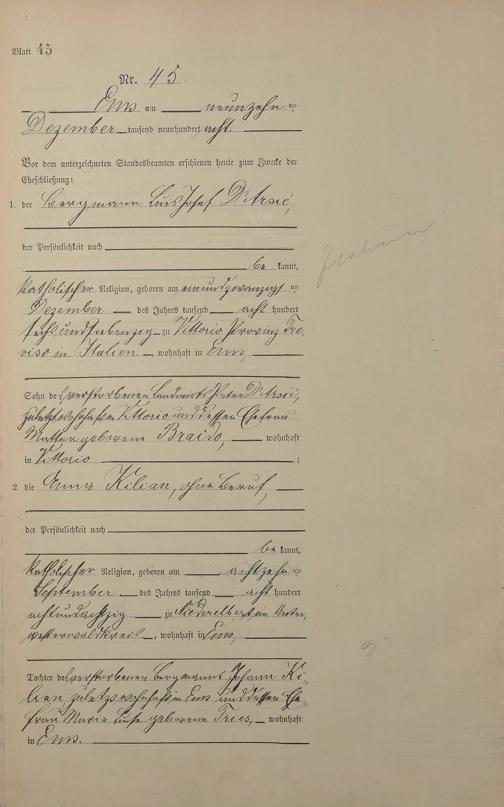 Blatt 45
Nr. 45.
Ems am neunzehnten
Dezember tausend neunhundert acht.
Vor dem unterzeichneten Standesbeamten erschienen heute zum Zwecke der
Eheschließung:
1. der Bergmann Luis Josef D'Arsié,
der Persönlichkeit nach
be kannt,
katholischer Religion, geboren am einundzwanzigsten
Dezember des Jahres tausend acht hundert
sechsundsiebenzig zu Vittorio Provinz Tre-
viso in Italien, wohnhaft in Ems,
Italiener
Sohn des verstorbenen Landwirts Peter D'Arsié,
zuletzt wohnhaft in Vittorio und dessen Ehefrau
geborene Braido, wohnhaft
in Vittorio ;
2. die Anna Kilian, ohne Beruf,
der Persönlichkeit nach
be kannt,
katholischer Religion, geboren am achtzehnten
September des Jahres tausend acht hundert
achtundachtzig zu Niederelbert im Unter-
westerwaldkreis, wohnhaft in Ems,
Tochter des verstorbenen Bergmanns Johann Ki-
lian, zuletzt wohnhaft in Ems und dessen Ehe-
frau Maria geborene Fries, wohnhaft
in Ems.